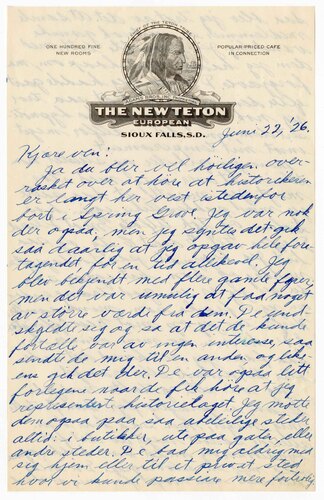 HOME OF THE TETON
ONE HUNDRED FINE
NEW ROOMS
POPULAR PRICED CAFE
IN CONNECTION
THE NEW TETON
EUROPEAN
SIOUX FALLS, S.D.
Juni 22, '26.
Kjære ven:
Ja du blir vel höiligen over-
rasket over at höre at historikeren
er langt her vest istedenfor
borte i Spring Grove. Jeg var nok
der ogsaa, men jeg syntes det gik
saa daarlig at jeg opgav hele fore-
tagendet, for en tid allikevel. Jeg
blev bekjendt med flere gamle fyrer,
men det var umulig at faa noget
av större værde fra dem. De und-
skyldte sig og sa at det de kunde
fortælle var av ingen interesse, saa
sendte de mig til en anden, og like-
ens gik det der. De var ogsaa litt
forlegene naar de fik höre at jeg
representerte historielaget. Jeg mötte
dem ogsaa paa saa ubeleilige steder
altid: i butikker, ute paa gater, eller
andre steder. De bad mig aldrig med
sig hjem eller til et privat sted
hvor vi kunde passiare mere fortrolig